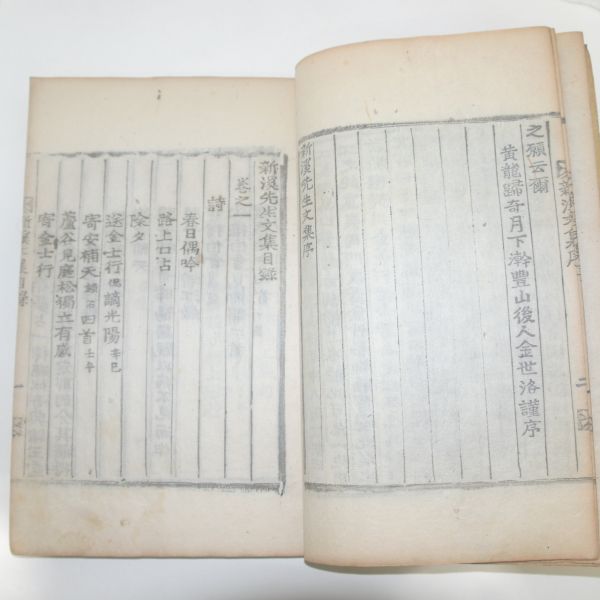 之願云爾
黃龍歸奇月下澣豐山後人金世洛謹序
新溪先生文集序
二
新溪先生文集目錄
卷之一
詩
春日偶吟
路上口占
除夕
送金士行 謫光陽 辛巳
寄安補天 四首 壬午
蘆谷見庭松獨立有感
寄金士行
一